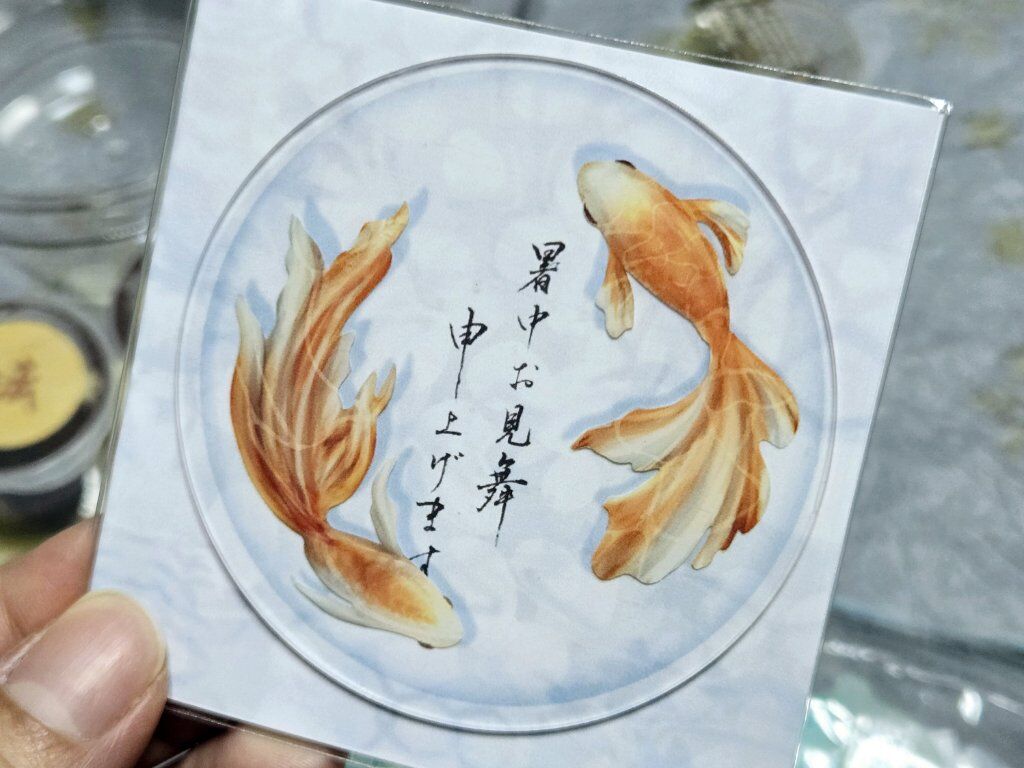 暑中お見舞
申上げます